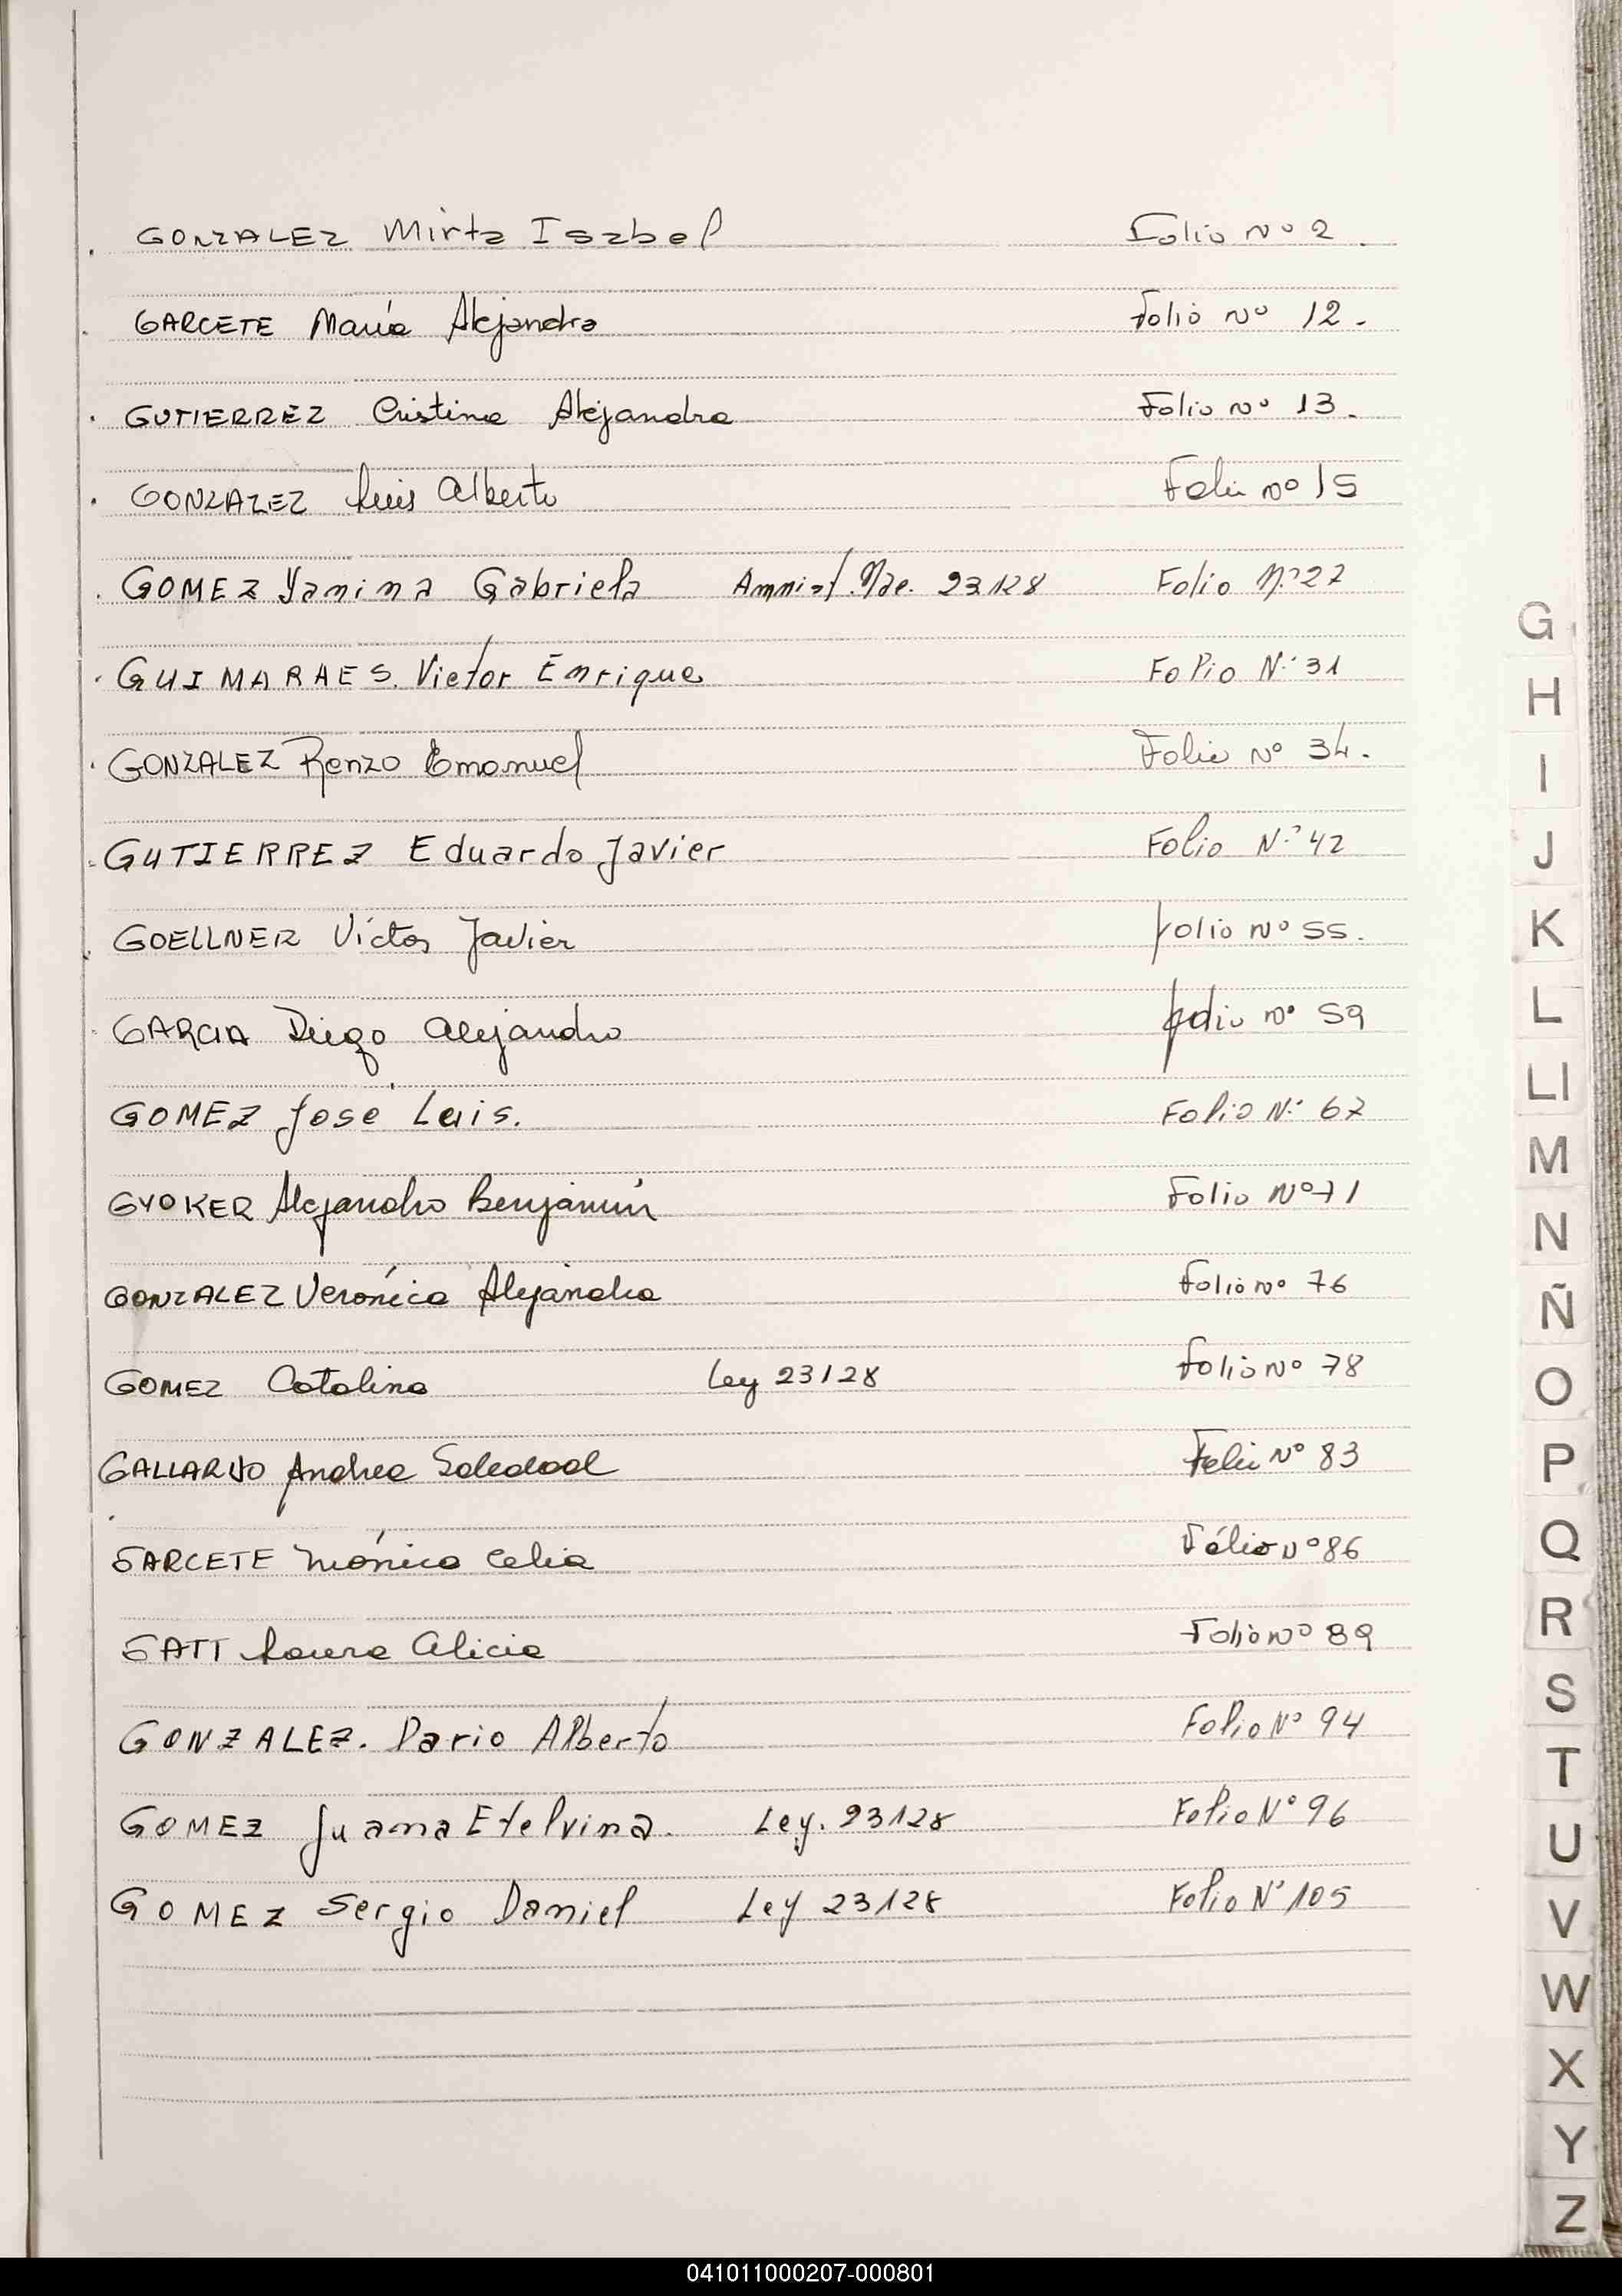 GONZALEZ Mirta Isabel Folio Nº 2.
GARCETE María Alejandra Folio Nº 12.
GUTIERREZ Cristina Alejandra Folio Nº 13.
GONZALEZ Luis Alberto Folio Nº 15
GOMEZ Yanina Gabriela Amnist. Nac. 23.128 Folio N° 27
GUIMARAES. Victor Enrique Folio N° 31
GONZALEZ Renzo Emanuel Folio Nº 34.
GUTIERREZ Eduardo Javier Folio N° 42
GOELLNER Víctor Javier Folio Nº 55.
GARCIA Diego Alejandro Folio Nº 59
GOMEZ José Luis. Folio N° 67
GYOKER Alejandro Benjamín Folio Nº 71
GONZALEZ Verónica Alejandra Folio Nº 76
GOMEZ Catalina Ley 23128 Folio Nº 78
GALLARDO Andrea Soledad Folio Nº 83
GARCETE Mónica Celia Fólio Nº 86
GATT Laura Alicia Folio Nº 89
GONZALEZ. Dario Alberto Folio Nº 94
GOMEZ Juana Etelvina. Ley. 23128 Folio N° 96
GOMEZ Sergio Daniel Ley 23128 Folio N° 105
G
H
I
J
K
L
Ll
M
N
Ñ
O
P
Q
R
S
T
U
V
W
X
Y
Z
041011000207-000801